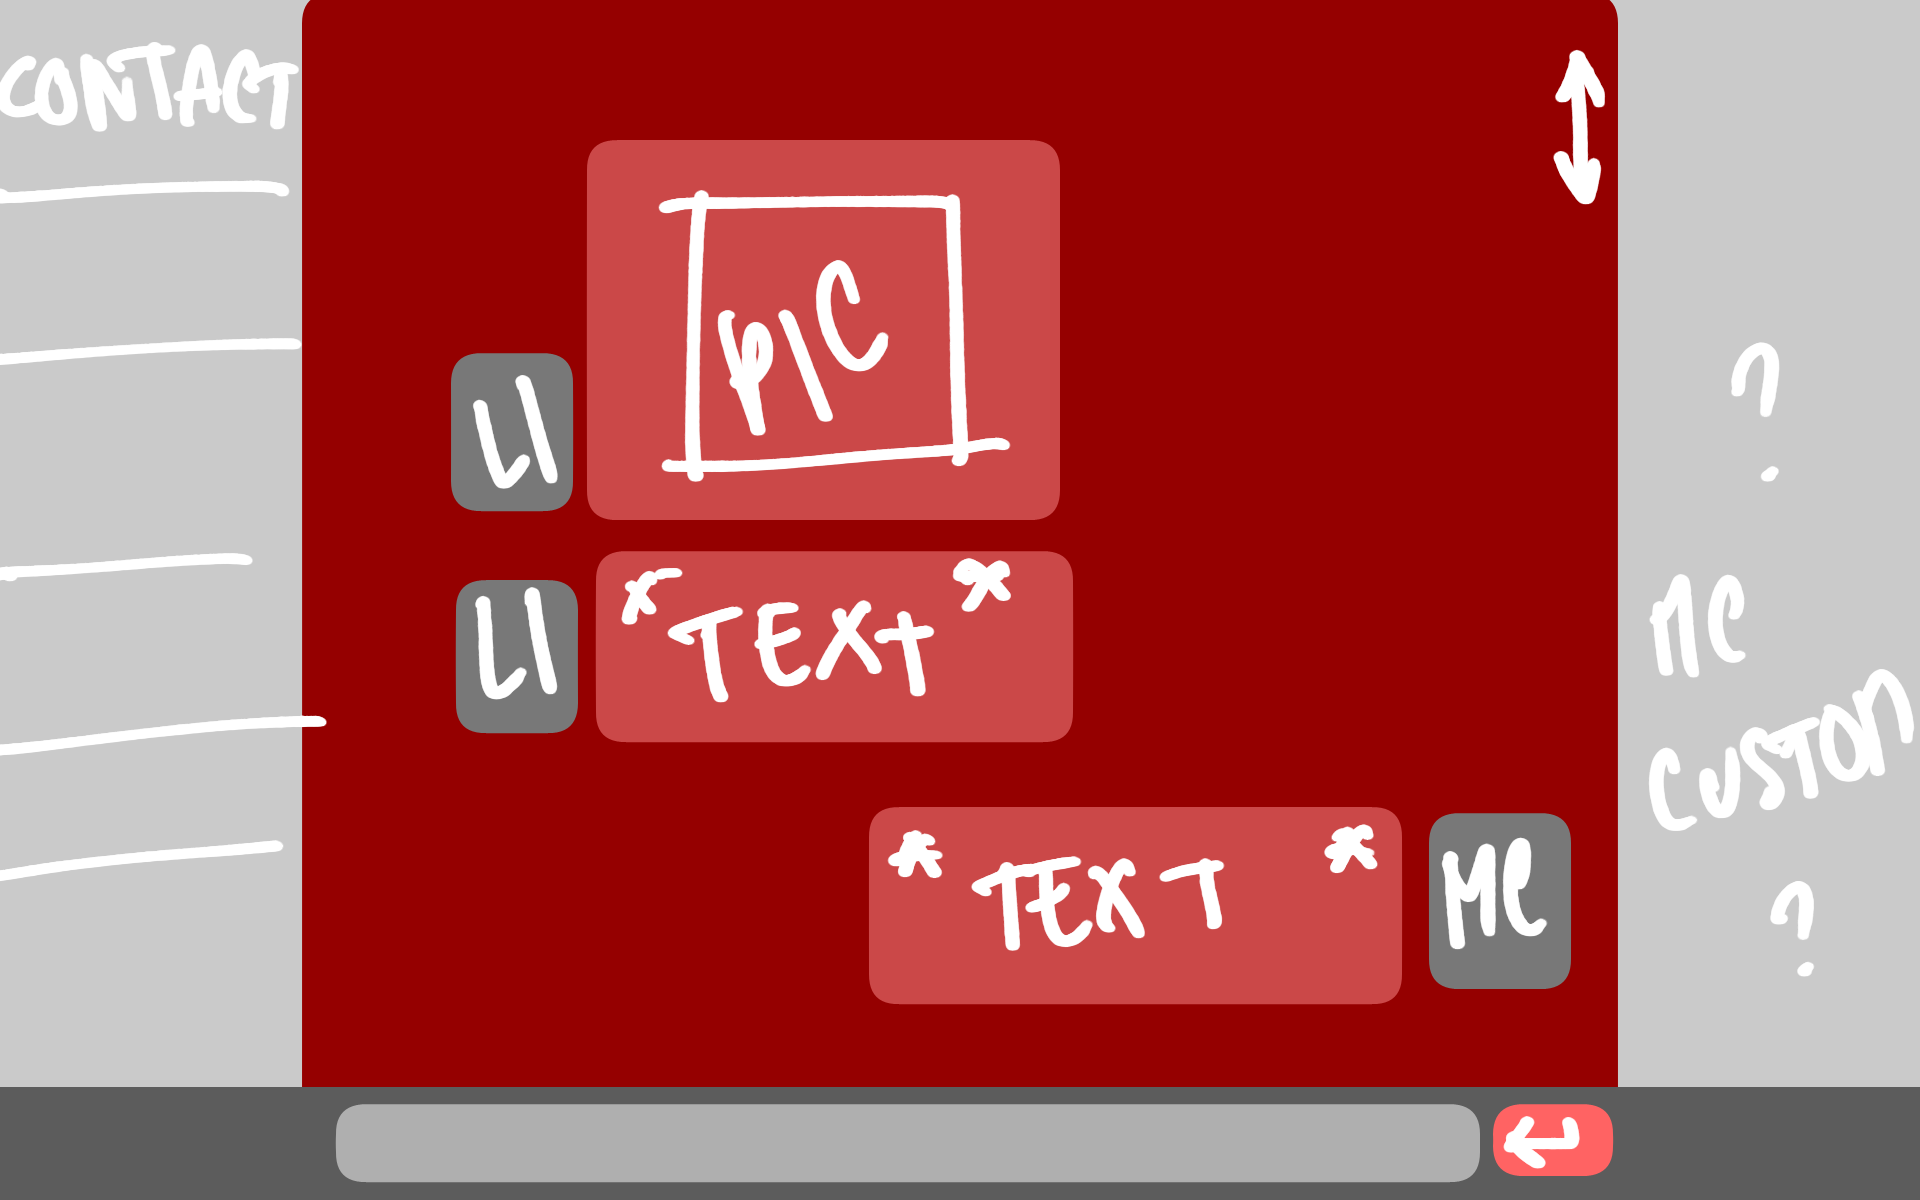 CONTACT
PIC
LI
LI
*TEXT*
* TEXT *
ME
?
MC
CUSTOM
?